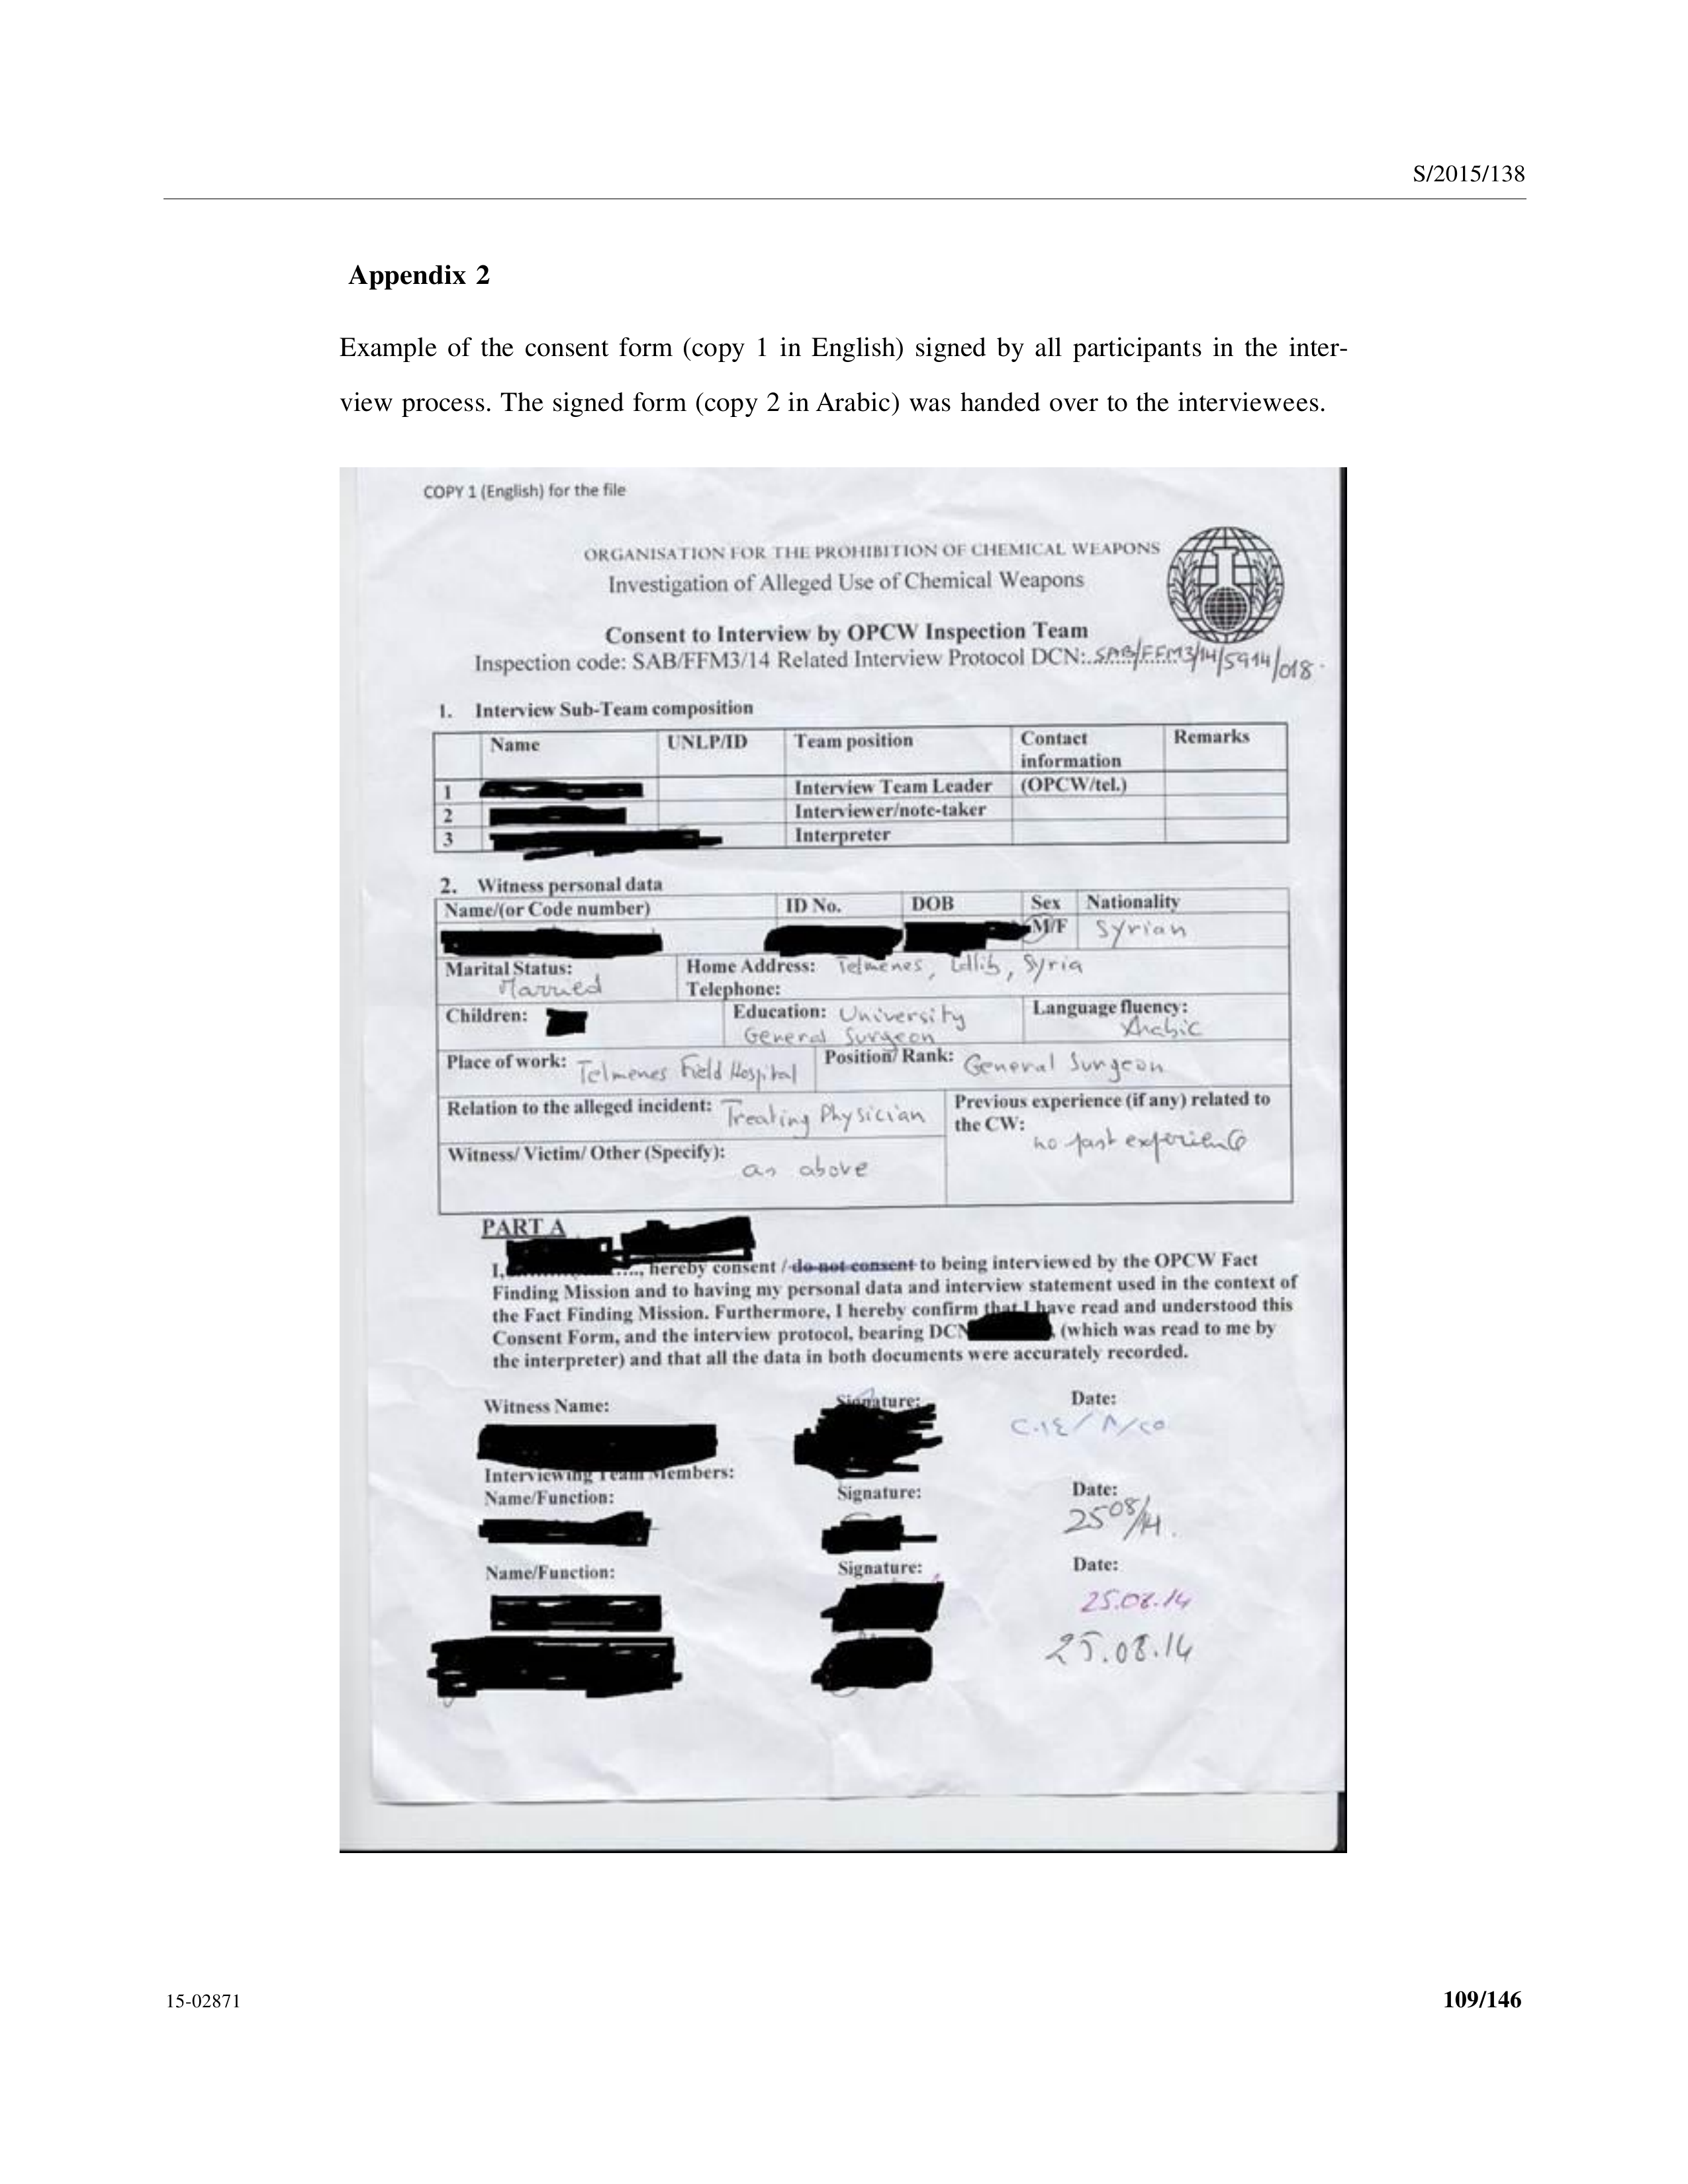 S/2015/138
Appendix 2
Example of the consent form (copy 1 in English) signed by all participants in the inter-
view process. The signed form (copy 2 in Arabic) was handed over to the interviewees.
COPY 1 (English) for the file
ORGANISATION FOR THE PROHIBITION OF CHEMICAL WEAPONS
Investigation of Alleged Use of Chemical Weapons
Consent to Interview by OPCW Inspection Team
Inspection code: SAB/FFM3/14 Related Interview Protocol DCN: SAB/FFM3/14/5914/018.
1. Interview Sub-Team composition
Name UNLP/ID Team position Contact information Remarks
1 Interview Team Leader (OPCW/tel.)
2 Interviewer/note-taker
3 Interpreter
2. Witness personal data
Name/(or Code number) ID No. DOB Sex Nationality
M/F Syrian
Marital Status: Married Home Address: Telmenes, Idlib, Syria
Telephone:
Children: Education: University General Surgeon Language fluency: Arabic
Place of work: Telmenes Field Hospital Position/ Rank: General Surgeon
Relation to the alleged incident: Treating Physician Previous experience (if any) related to the CW: no past experience
Witness/ Victim/ Other (Specify): as above
PART A
I, ...., hereby consent / do not consent to being interviewed by the OPCW Fact
Finding Mission and to having my personal data and interview statement used in the context of
the Fact Finding Mission. Furthermore, I hereby confirm that I have read and understood this
Consent Form, and the interview protocol, bearing DCN , (which was read to me by
the interpreter) and that all the data in both documents were accurately recorded.
Witness Name: Signature: Date:
٢٠١٤/٨/٢٥
Interviewing Team Members:
Name/Function: Signature: Date:
25 08/14.
Name/Function: Signature: Date:
25.08.14
25.08.14
15-02871
109/146